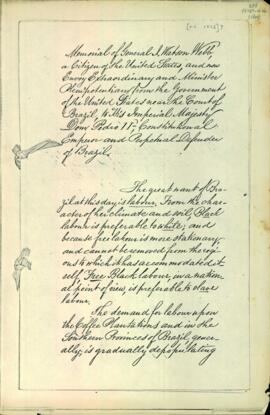 Memorial of General J. Watson Webb
a Citizen of the United States, and now
Envoy Extraordinary and Minister
Plenipotentiary from the Government
of the United States near the Court of
Brazil, to His Imperial Majesty
Dom Pedro IId, Constitutional
Emperor and Perpetual Defender
of Brazil.
The great want of Bra-
zil at this day, is labour. From the char-
acter of her climate and soil, Black
labour is preferable to white; and
because free labour is more stationary,
and cannot be removed from the reg-
ions to which it has accommodated it
self, Free Black labour, in a nation-
al point of view, is preferable to slave
labour.
The demand for labour upon
the Coffee Plantations and in the
Southern Provinces of Brazil gener-
ally, is gradually depopulating